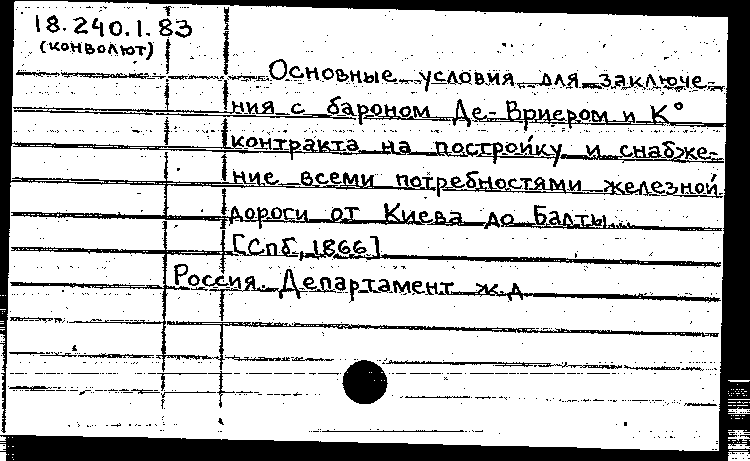 18.240.1.83
(конволют)
Основные условия для заключе-
ния с бароном Де-Вриером и К°
контракта на постройку и снабже-
ние всеми потребностями железной
дороги от Киева до Балты...
[Спб, 1866]
Россия. Департамент ж.д.